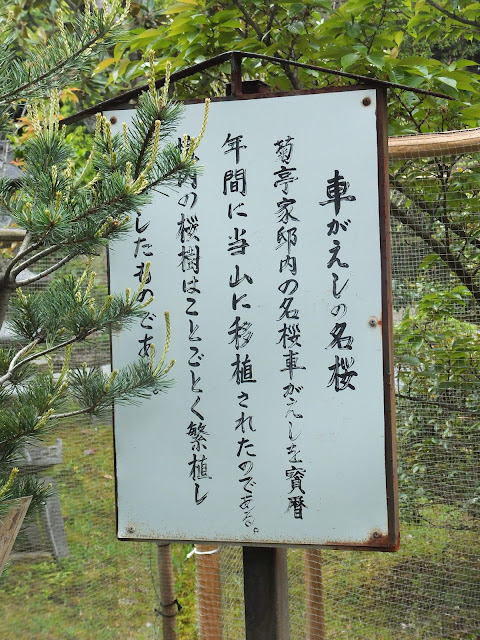 車がえしの名桜
菊亭家邸内の名桜車がえしを寳暦
年間に当山に移植されたのである。
内の桜樹はことごとく繁植し
したものであ